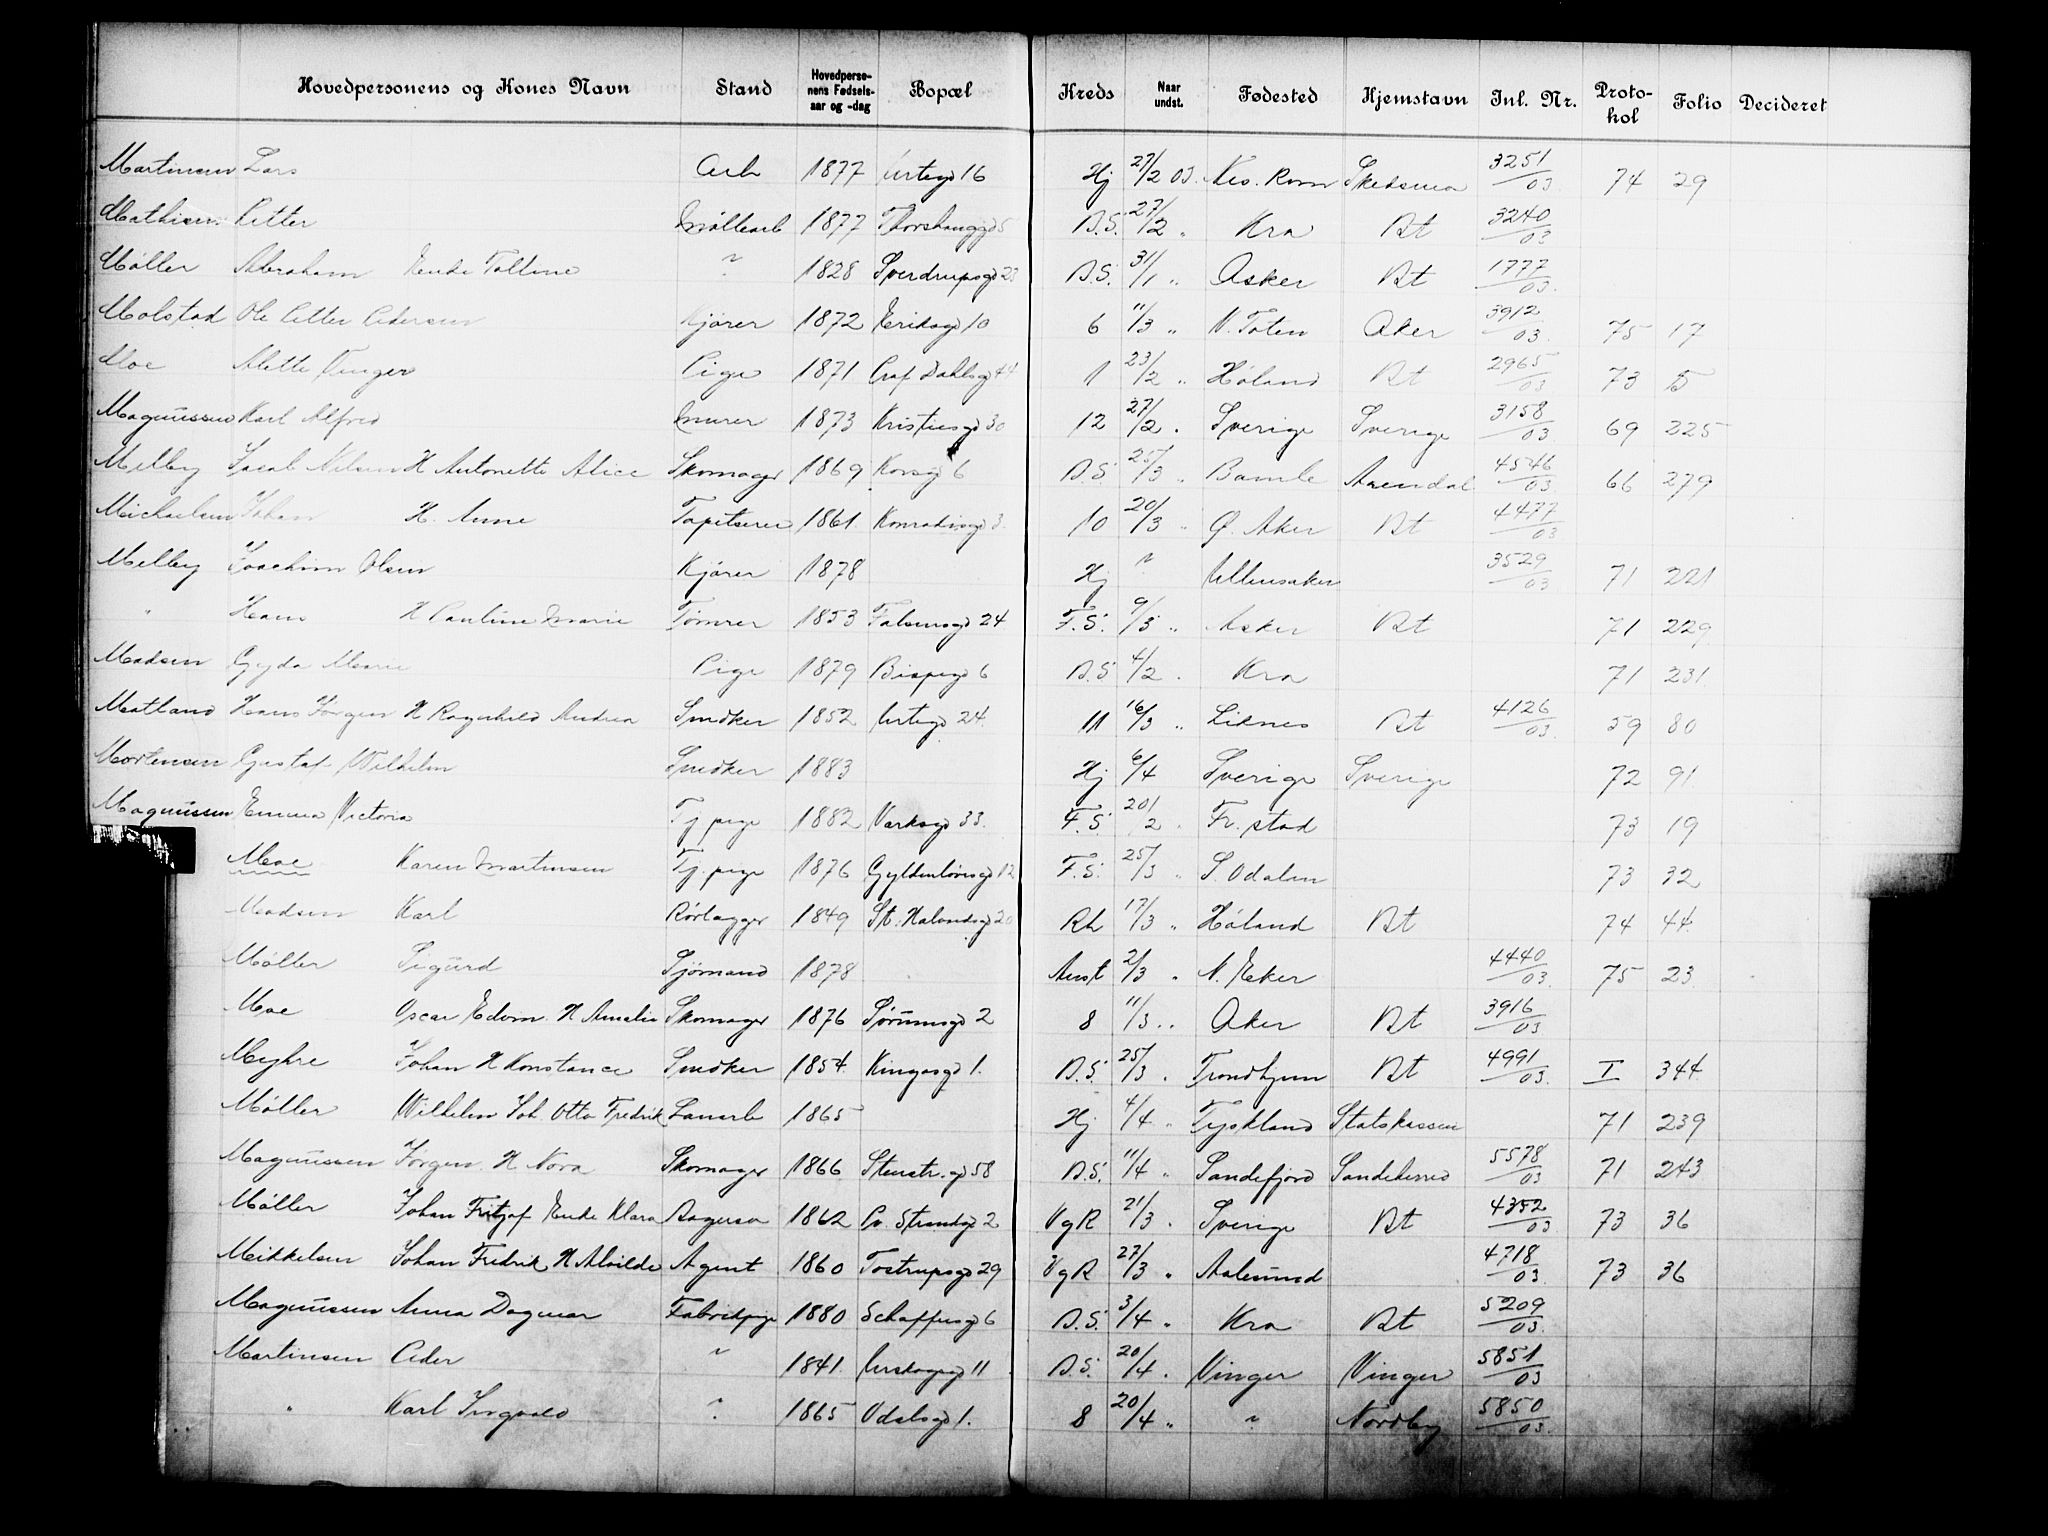 Hovedpersonens og Kones Navn Stand Hovedpersonens Fødselsaar og -dag Bopæl Kreds Naar undst. Fødested Hjemstavn Inl. Nr. Protokol Folio Decideret
Martinsen Lars Arb 1877 Urtegd 16 Hj 27/2 03. Nes. Rom Skedsmo 3251/03 74 29
Mathisen Petter Mållearb 1877 Thorshauggd 5 B.S. 27/2 „ Kra Bt 3240/03
Møller Abraham Enke Talline ~ 1828 Sverdrupsgd 23 B.S. 31/1 „ Asker Bt 1777/03.
Molstad Ole Petter Pedersen Kjører 1872 Eriksgd 10 6 11/3 „ V. Toten Aker 3912/03. 75 17
Moe Alette Vinger Pige 1871 Prof Dahlsgd 44 1 23/2 „ Høland Bt 2965/03 73 5
Magnussen Karl Alfred Murer 1873 Kristiesgd 30 12 27/2 . Sverige Sverige 3158/03 69 225
Melby Jacob Nilsen H Antonette Alice Skomager 1869 Korsgd 6 B.S 25/3 „ Bamle Arendal 4546/03 66 279
Michaelsen Johan H. Anne Tapetserer 1861. Konradinsgd 3. 10 20/3 „ Ø. Aker Bt 4477/03
Melby Joachim Olsen Kjører 1878 Hj ~ Ullensaker 3529/03 71 221
„ Hans H Pauline Marie Tømrer 1853 Falsensgd 24 F.S. 9/3 „ Asker Bt 71 229
Madsen Gyda Marie Pige 1879 Bispegd 6 B.S 4/2 . Kra 71 231.
Matland Hans Jørgen H Ragnhild Andrea Snedker 1852 Urtegd 24. 11 16/3 „ Liknes Bt 4126/03. 59 80
Mortensen Gustaf Wilhelm Snedker 1883 Hj 6/4 Sverige Sverige 72 91
Magnussen Emma Victoria Tj pige 1882 Varksgd 33. F.S. 20/2 „ Fr. stad 73 19
Moe Karen Martinsen Tj. pige 1876 Gyldenløvesgd 12 F.S. 25/3 „ S. Odalen 73 32
Madsen Karl Rørlægger 1849 St. Halvardsgd 20 Rh 17/3 „ Høland Bt 74 44.
Møller Sigurd Sjømand 1878 Anst 2/3 „ N. Eker 4440/03. 75 23
Moe Oscar Edvin. H Amalie Skomager 1876 Sørumsgd 2 8 11/3 „ Aker Bt 3916/03
Myhre Johan H Konstance Snedker 1854. Kingosgd 1. B.S. 25/3 . Trondhjem Bt 4991/03. I 344
Møller Wilhelm Joh. Otto Fredrik 1865 Hj 4/4 „ Tyskland Statskassen 71 239
Magnussen Jørgen. H Nora Skomager 1866 Stenstr.gd 58 B.S. 11/4 „ Sandefjord Sandeherred 5578/03 71 243
Møller Johan Fritjof Enke Klara 1862 Pv. Strandgd 2 VgR 21/3 . Sverige Bt 4352/03 73 36
Mikkelsen Johan Fredrik H Alvilde Agent 1860 Tostrupsgd 29 VgR 27/3 „ Aalesund 4718/03. 73 36
Magnussen Anna Dagmar Fabrikpige 1880 Schaffersgd 6 B.S. 3/4 „ Kra Bt 5209/03.
Martinsen Peder ~ 1841. Urskogsgd 11 B.S. 20/4 . Vinger Vinger 5851/03
„ Karl Ingvald ~ 1865 Odalsgd 1. 8 20/4 „ ~ Nordby 5850/03.